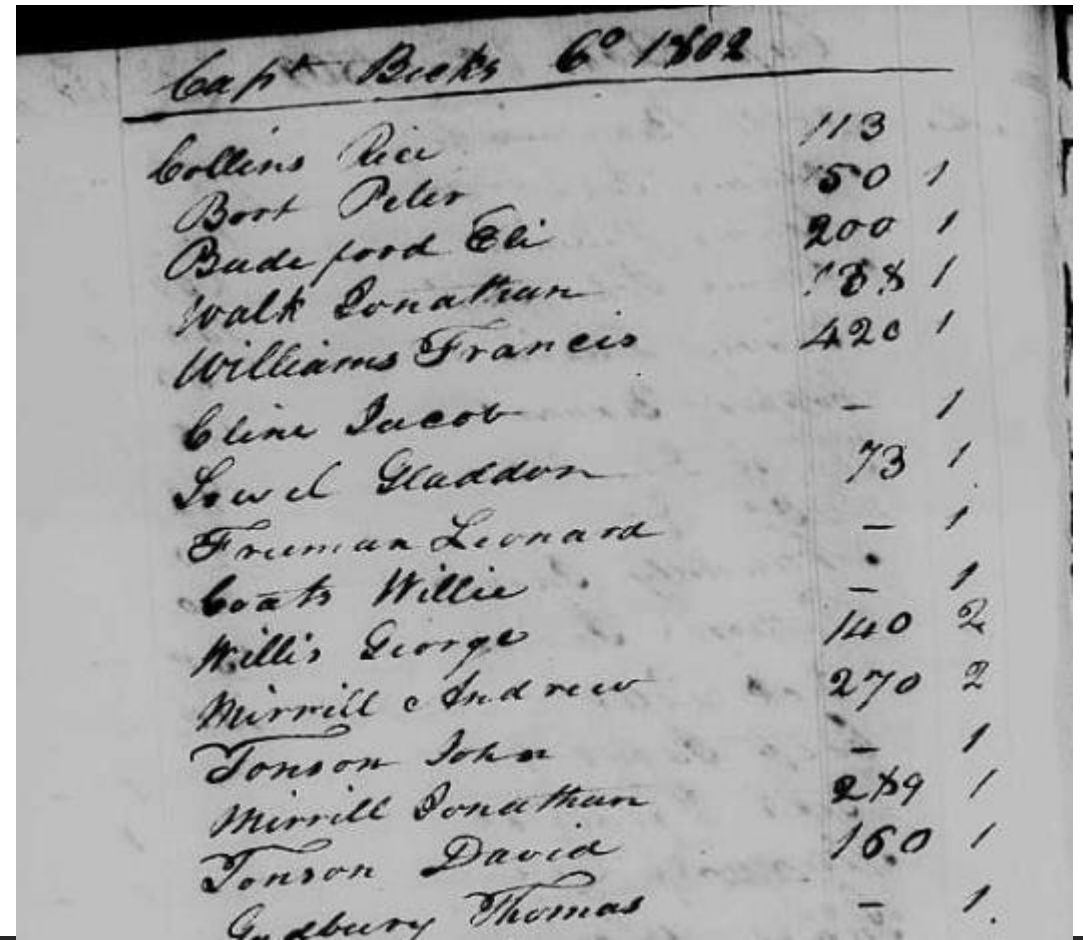 Capt Beeks Co 1802
Collins Rice 113
Bort Peter 50 1
Badeford Eli 200 1
Walk Jonathan 188 1
Williams Francis 420 1
Cline Jacob – 1
Lowel Gladdon 73 1
Freeman Leonard – 1
Coats Willie – 1
Willis George 140 2
Mirrill Andrew 270 2
Jonson John – 1
Mirrill Jonathan 289 1
Jonson David 160 1
Gadbury Thomas – 1.